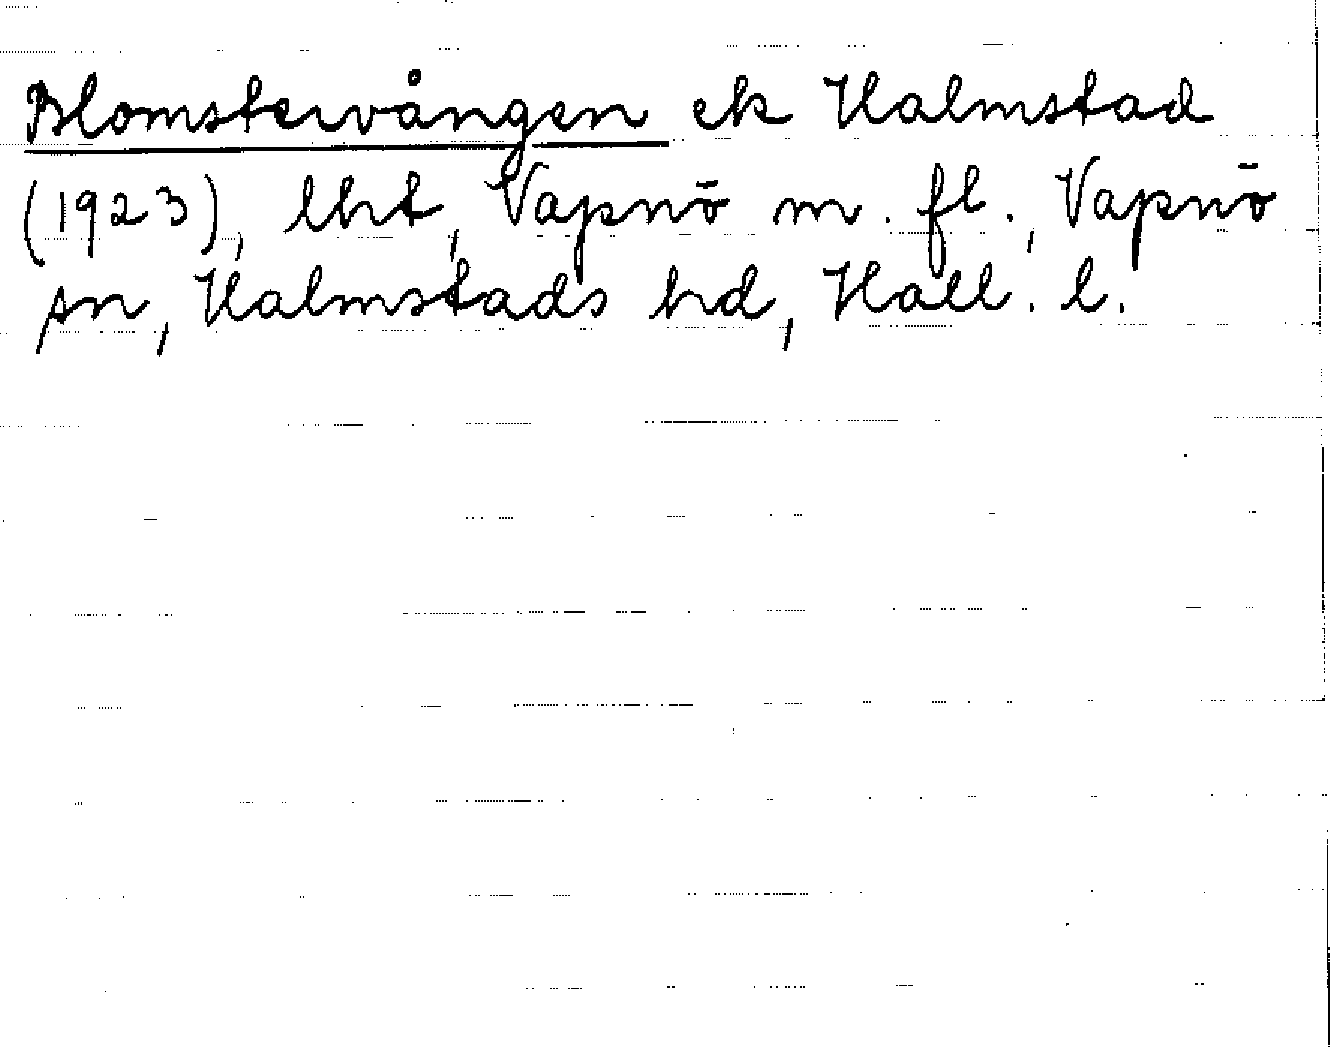 Blomstervången ek Halmstad
(1923), lht, Vapnö m. fl., Vapnö
sn, Halmstads hd, Hall. l.